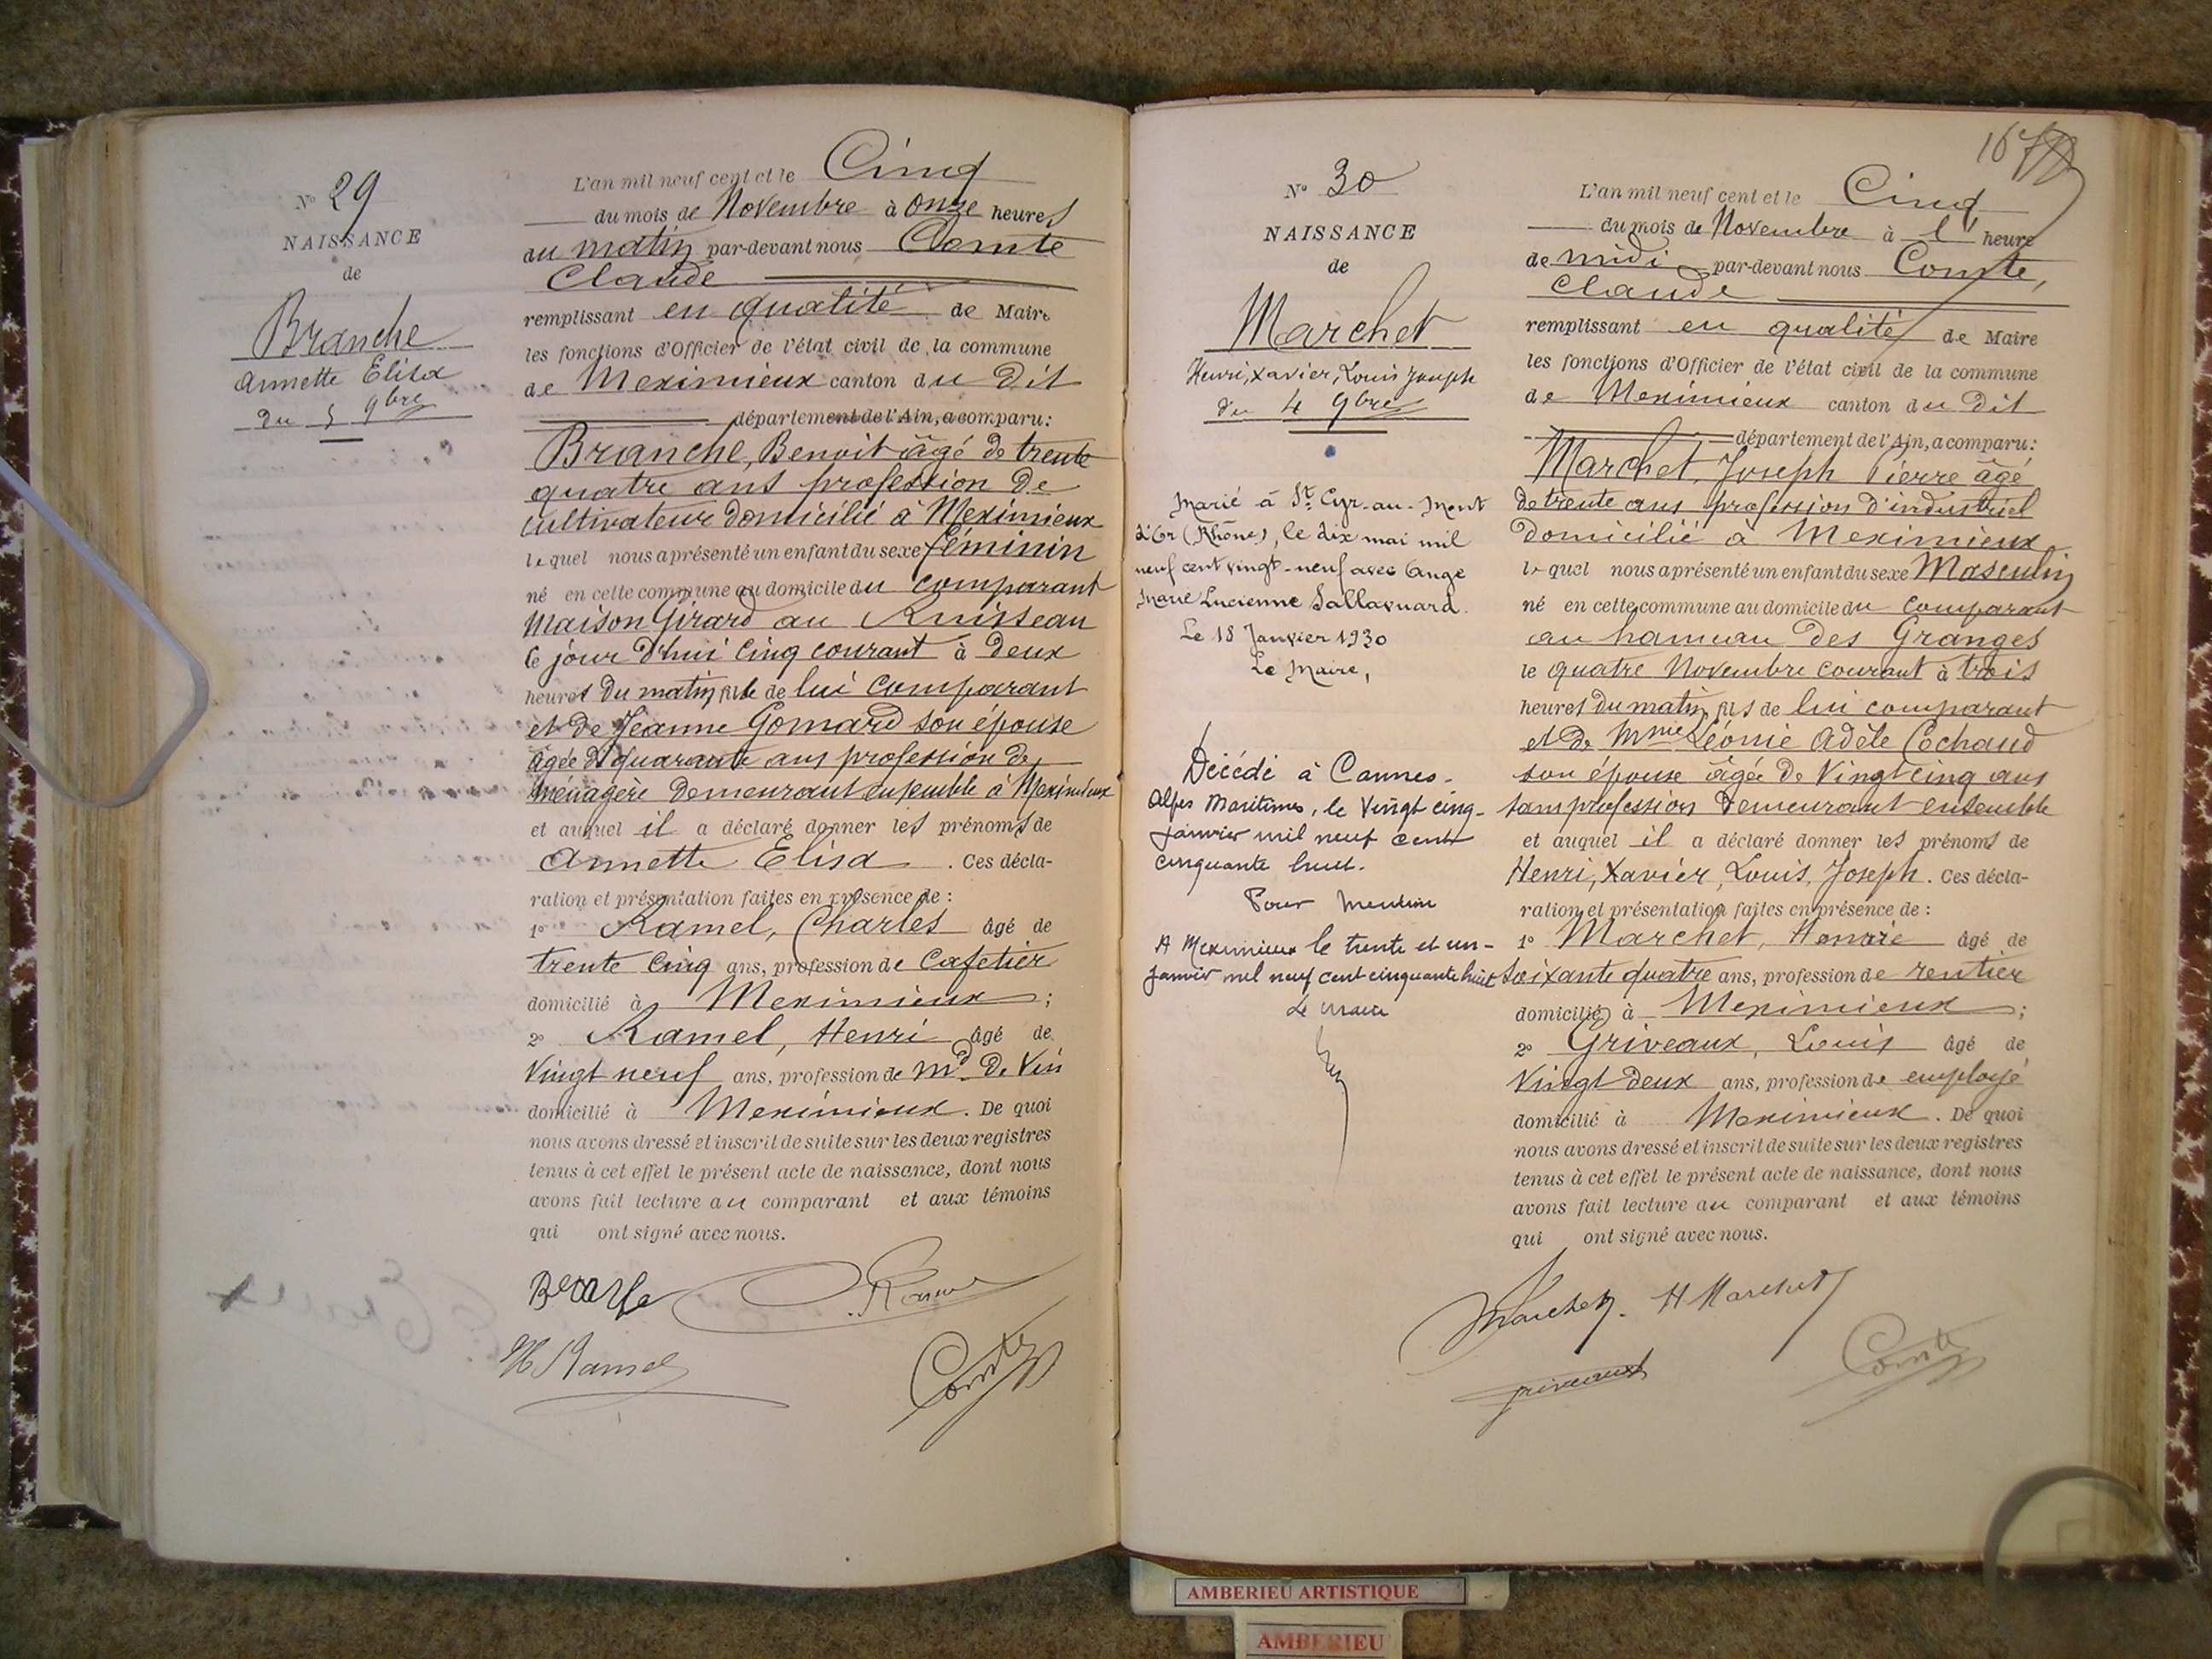 Nº 29
NAISSANCE
de
Branche
Annette Elisa
du 5 9bre
L'an mil neuf cent et le Cinq
du mois de Novembre à onze heures
du matin par-devant nous Comte
Claude
remplissant en qualité de Maire
les fonctions d'Officier de l'état civil de la commune
de Meximieux canton du dit
département de l'Ain, a comparu :
Branche, Benoit âgé de trente
quatre ans profession de
cultivateur domicilié à Meximieux
lequel nous a présenté un enfant du sexe féminin
né en cette commune au domicile du comparant
maison Girard au Ruisseau
le jour d'hui cinq courant à deux
heures du matin fille de lui comparant
et de Jeanne Gomard son épouse
âgée de quarante ans profession de
ménagère demeurant ensemble à Meximieux
et auquel il a déclaré donner les prénoms de
Annette Elisa . Ces décla-
ration et présentation faites en présence de :
1º Ramel, Charles âgé de
trente cinq ans, profession de cafetier
domicilié à Meximieux ;
2º Ramel, Henri âgé de
vingt neuf ans, profession de Md de vin
domicilié à Meximieux . De quoi
nous avons dressé et inscrit de suite sur les deux registres
tenus à cet effet le présent acte de naissance, dont nous
avons fait lecture au comparant et aux témoins
qui ont signé avec nous.
H Ramel
Comte
167
Nº 30
NAISSANCE
de
Marchet
Henri, Xavier, Louis Joseph
du 4 9bre
Marié à St. Cyr-au-Mont
d'Or (Rhône), le dix mai mil
neuf cent vingt-neuf avec Ange
Marie Lucienne
Le 18 Janvier 1930
Le Maire,
Décédé à Cannes-
Alpes Maritimes, le vingt cinq-
janvier mil neuf cent
cinquante huit.
Pour Mention
A Meximieux le trente et un-
janvier mil neuf cent cinquante huit
Le Maire
L'an mil neuf cent et le Cinq
du mois de Novembre à l' heure
de midi par-devant nous Comte,
Claude
remplissant en qualité de Maire
les fonctions d'Officier de l'état civil de la commune
de Meximieux canton du dit
département de l'Ain, a comparu :
Marchet, Joseph Pierre âgé
de trente ans profession d'industriel
domicilié à Meximieux
lequel nous a présenté un enfant du sexe Masculin
né en cette commune au domicile du comparant
au hameau des Granges
le quatre Novembre courant à trois
heures du matin fils de lui comparant
et de Mme Léonie Adèle Cochaud
son épouse âgée de vingt cinq ans
sans profession demeurant ensemble
et auquel il a déclaré donner les prénoms de
Henri, Xavier, Louis, Joseph . Ces décla-
ration et présentation faites en présence de :
1º Marchet, âgé de
soixante quatre ans, profession de rentier
domicilié à Meximieux ;
2º Griveaux, Louis âgé de
vingt deux ans, profession de employé
domicilié à Meximieux . De quoi
nous avons dressé et inscrit de suite sur les deux registres
tenus à cet effet le présent acte de naissance, dont nous
avons fait lecture au comparant et aux témoins
qui ont signé avec nous.
Marchet. H Marchet
griveaux
Comte
AMBERIEU ARTISTIQUE
AMBERIEU